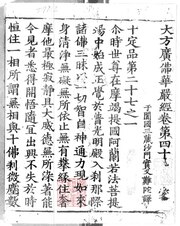 大方廣佛華嚴經卷第四十
于闐國三藏沙門實叉難陀譯
十定品第二十七之一
爾時世尊在摩竭提國阿蘭若法菩提
場中始成正覺於普光明殿入剎那際
諸佛三昧以一切智自神通力現如來
身清淨無礙無所依止無有攀緣住奢
摩他最極寂靜具大威德無所染著能
令見者悉得開悟隨宜出興不失於時
恒住一相所謂無相與十佛剎微塵數